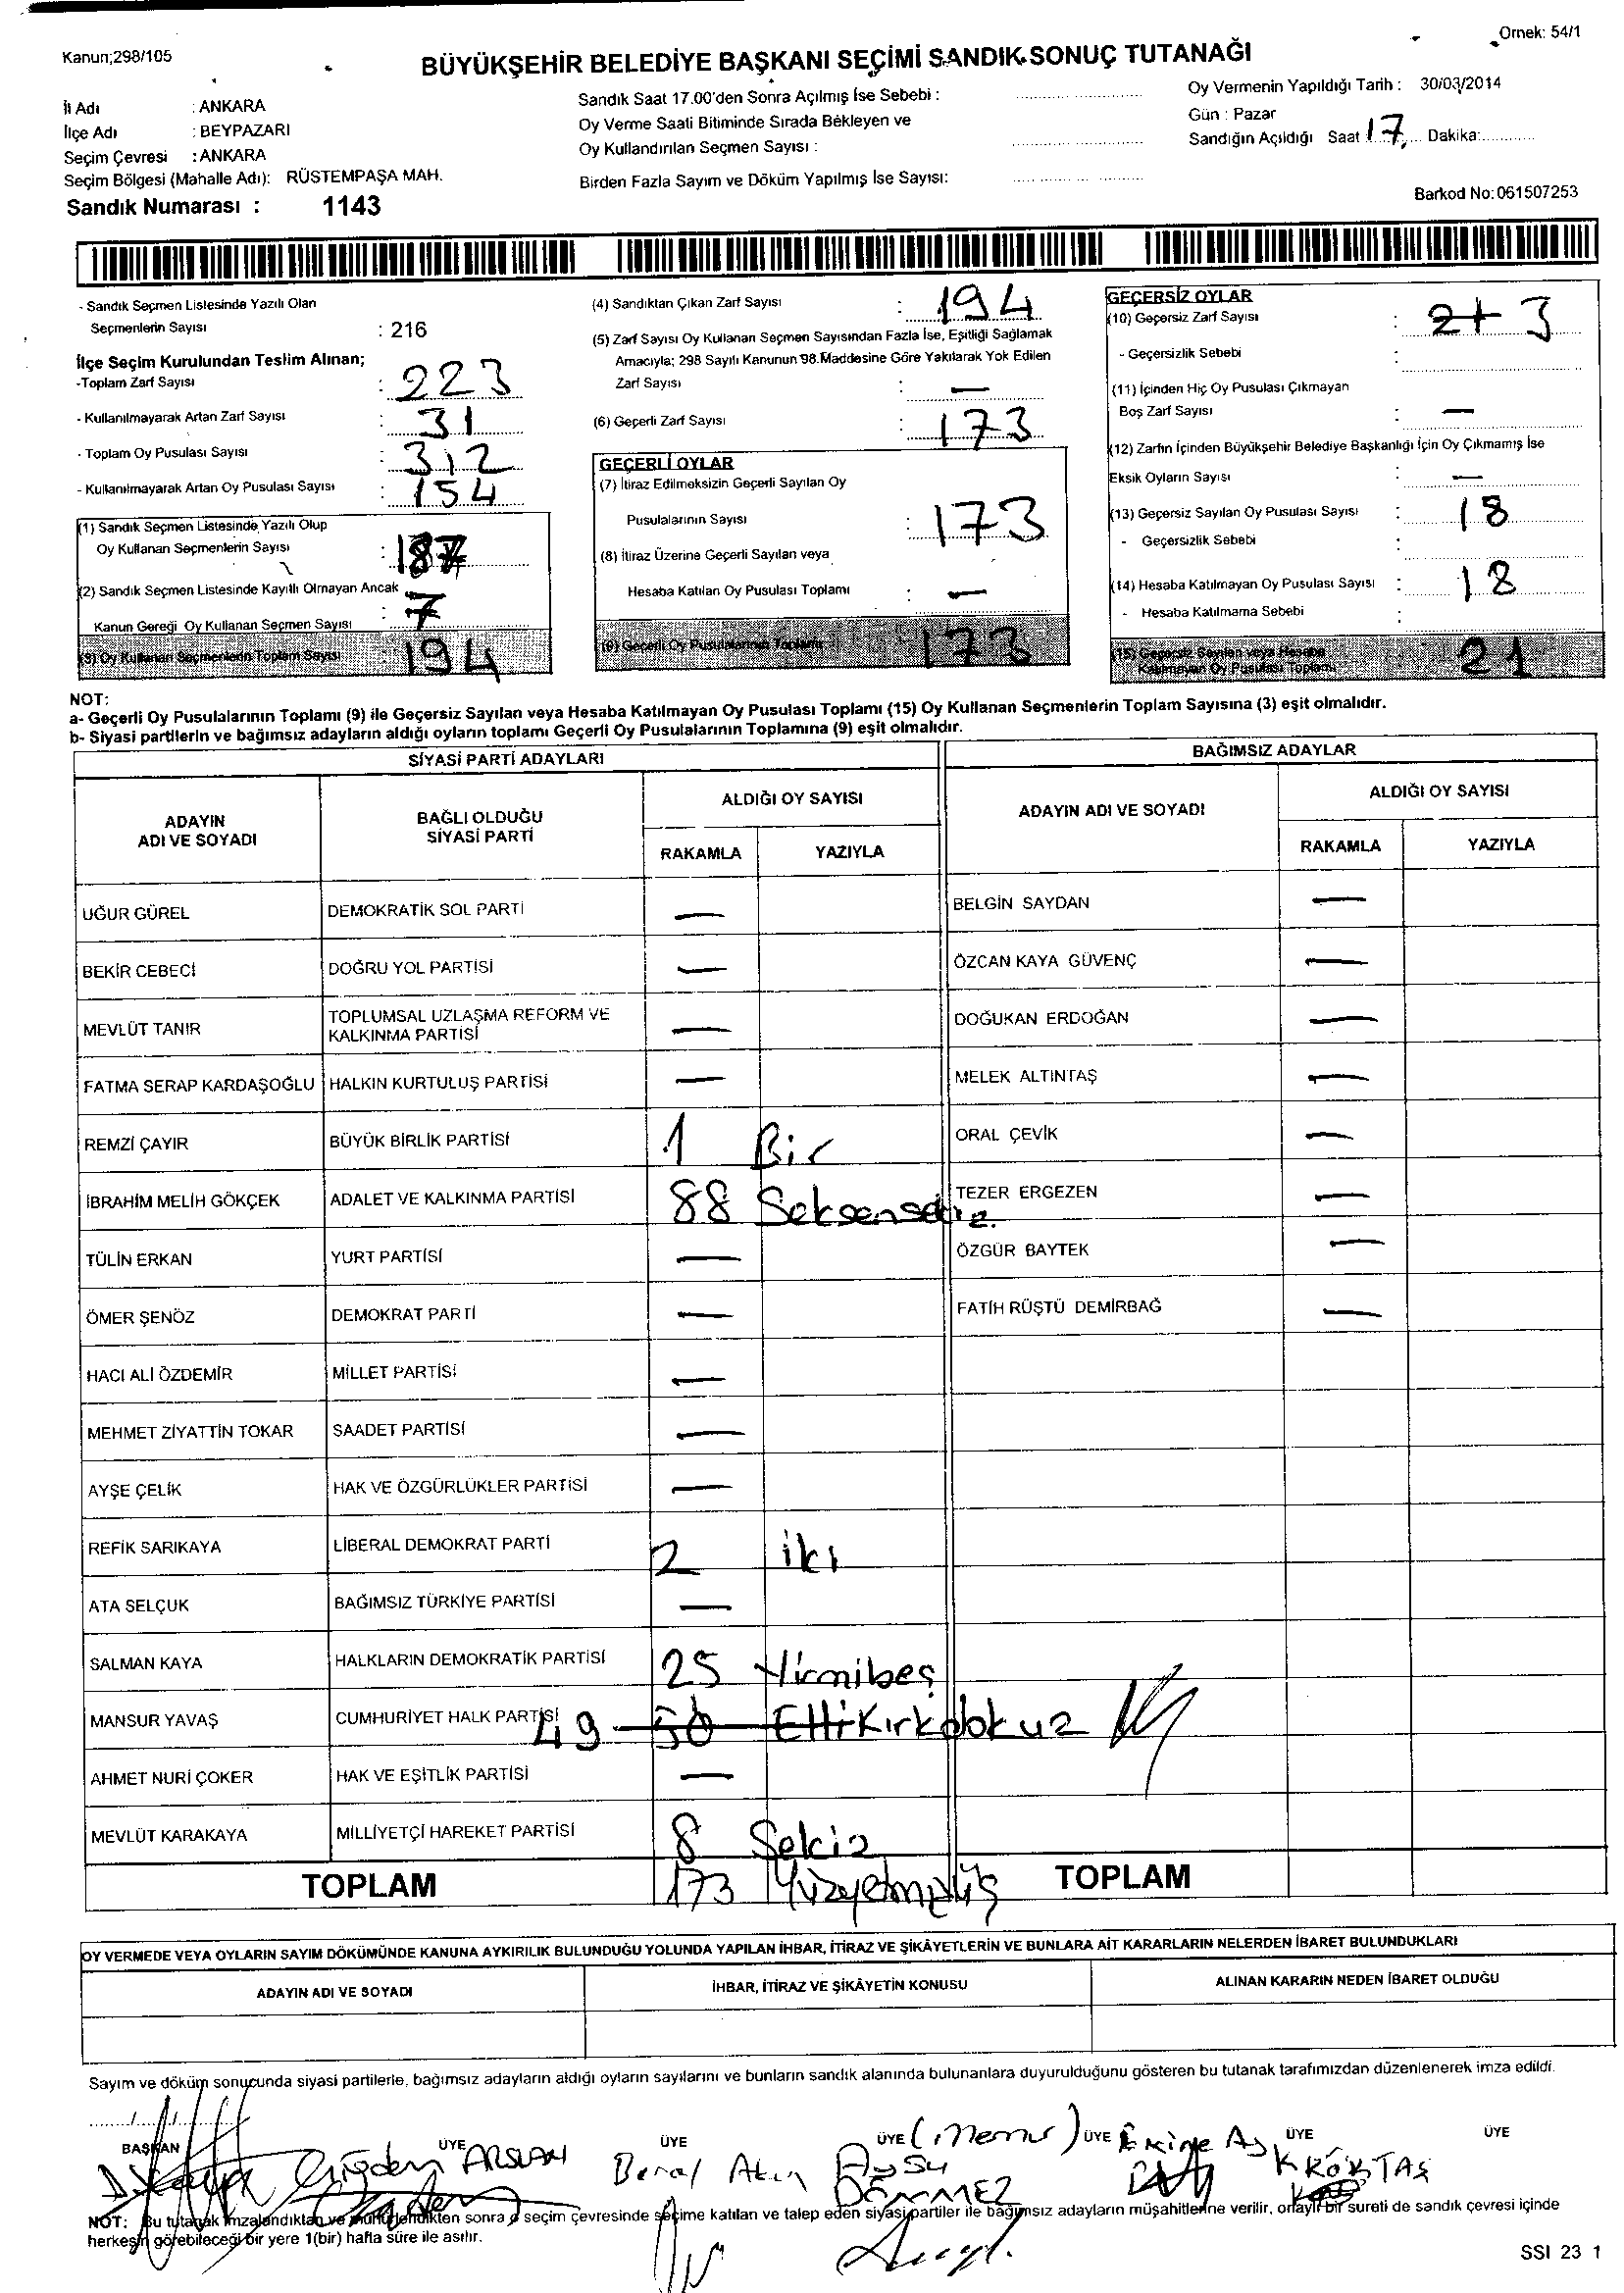 Kanun;298/105
Ornek: 54/1
BÜYÜKŞEHİR BELEDİYE BAŞKANI SEÇİMİ SANDIK SONUÇ TUTANAĞI
İl Adı : ANKARA
İlçe Adı : BEYPAZARI
Seçim Çevresi : ANKARA
Seçim Bölgesi (Mahalle Adı): RÜSTEMPAŞA MAH.
Sandık Numarası : 1143
Sandık Saat 17.00'den Sonra Açılmış İse Sebebi :
Oy Verme Saati Bitiminde Sırada Bekleyen ve
Oy Kullandırılan Seçmen Sayısı :
Birden Fazla Sayım ve Döküm Yapılmış İse Sayısı:
Oy Vermenin Yapıldığı Tarih : 30/03/2014
Gün : Pazar
Sandığın Açıldığı Saat 17, Dakika:
Barkod No:061507253
- Sandık Seçmen Listesinde Yazılı Olan
Seçmenlerin Sayısı : 216
İlçe Seçim Kurulundan Teslim Alınan;
-Toplam Zarf Sayısı : 223
- Kullanılmayarak Artan Zarf Sayısı : 31
- Toplam Oy Pusulası Sayısı : 312
- Kullanılmayarak Artan Oy Pusulası Sayısı : 154
(1) Sandık Seçmen Listesinde Yazılı Olup
Oy Kullanan Seçmenlerin Sayısı : 187
(2) Sandık Seçmen Listesinde Kayıtlı Olmayan Ancak
Kanun Gereği Oy Kullanan Seçmen Sayısı : 7
(3) Oy Kullanan Seçmenlerin Toplam Sayısı 194
(4) Sandıktan Çıkan Zarf Sayısı : 194
(5) Zarf Sayısı Oy Kullanan Seçmen Sayısından Fazla İse, Eşitliği Sağlamak
Amacıyla; 298 Sayılı Kanunun 98.Maddesine Göre Yakılarak Yok Edilen
Zarf Sayısı : —
(6) Geçerli Zarf Sayısı : 173
GEÇERLİ OYLAR
(7) İtiraz Edilmeksizin Geçerli Sayılan Oy
Pusulalarının Sayısı : 173
(8) İtiraz Üzerine Geçerli Sayılan veya
Hesaba Katılan Oy Pusulası Toplamı : —
(9) Geçerli Oy Pusulalarının Toplamı 173
GEÇERSİZ OYLAR
(10) Geçersiz Zarf Sayısı : 2+ 3
- Geçersizlik Sebebi :
(11) İçinden Hiç Oy Pusulası Çıkmayan
Boş Zarf Sayısı : —
(12) Zarfın İçinden Büyükşehir Belediye Başkanlığı İçin Oy Çıkmamış İse
Eksik Oyların Sayısı : —
(13) Geçersiz Sayılan Oy Pusulası Sayısı : 18
- Geçersizlik Sebebi :
(14) Hesaba Katılmayan Oy Pusulası Sayısı : 18
- Hesaba Katılmama Sebebi :
(15) Geçersiz Sayılan veya Hesaba
Katılmayan Oy Pusulası Toplamı 21
NOT:
a- Geçerli Oy Pusulalarının Toplamı (9) ile Geçersiz Sayılan veya Hesaba Katılmayan Oy Pusulası Toplamı (15) Oy Kullanan Seçmenlerin Toplam Sayısına (3) eşit olmalıdır.
b- Siyasi partilerin ve bağımsız adayların aldığı oyların toplamı Geçerli Oy Pusulalarının Toplamına (9) eşit olmalıdır.
SİYASİ PARTİ ADAYLARI
ADAYIN ADI VE SOYADI BAĞLI OLDUĞU SİYASİ PARTİ ALDIĞI OY SAYISI
RAKAMLA YAZIYLA
UĞUR GÜREL DEMOKRATİK SOL PARTİ —
BEKİR CEBECİ DOĞRU YOL PARTİSİ —
MEVLÜT TANIR TOPLUMSAL UZLAŞMA REFORM VE KALKINMA PARTİSİ —
FATMA SERAP KARDAŞOĞLU HALKIN KURTULUŞ PARTİSİ —
REMZİ ÇAYIR BÜYÜK BİRLİK PARTİSİ 1 Bir
İBRAHİM MELİH GÖKÇEK ADALET VE KALKINMA PARTİSİ 88 Seksensekiz
TÜLİN ERKAN YURT PARTİSİ —
ÖMER ŞENÖZ DEMOKRAT PARTİ —
HACI ALİ ÖZDEMİR MİLLET PARTİSİ —
MEHMET ZİYATTİN TOKAR SAADET PARTİSİ —
AYŞE ÇELİK HAK VE ÖZGÜRLÜKLER PARTİSİ —
REFİK SARIKAYA LİBERAL DEMOKRAT PARTİ 2 iki
ATA SELÇUK BAĞIMSIZ TÜRKİYE PARTİSİ —
SALMAN KAYA HALKLARIN DEMOKRATİK PARTİSİ 25 Yirmibeş
MANSUR YAVAŞ CUMHURİYET HALK PARTİSİ 49 50 Elli Kırkdokuz
AHMET NURİ ÇOKER HAK VE EŞİTLİK PARTİSİ —
MEVLÜT KARAKAYA MİLLİYETÇİ HAREKET PARTİSİ 8 Sekiz
TOPLAM 173 Yüzyetmişüş
BAĞIMSIZ ADAYLAR
ADAYIN ADI VE SOYADI ALDIĞI OY SAYISI
RAKAMLA YAZIYLA
BELGİN SAYDAN —
ÖZCAN KAYA GÜVENÇ —
DOĞUKAN ERDOĞAN —
MELEK ALTINTAŞ —
ORAL ÇEVİK —
TEZER ERGEZEN —
ÖZGÜR BAYTEK —
FATİH RÜŞTÜ DEMİRBAĞ —
TOPLAM
OY VERMEDE VEYA OYLARIN SAYIM DÖKÜMÜNDE KANUNA AYKIRILIK BULUNDUĞU YOLUNDA YAPILAN İHBAR, İTİRAZ VE ŞİKÂYETLERİN VE BUNLARA AİT KARARLARIN NELERDEN İBARET BULUNDUKLARI
ADAYIN ADI VE SOYADI İHBAR, İTİRAZ VE ŞİKÂYETİN KONUSU ALINAN KARARIN NEDEN İBARET OLDUĞU
Sayım ve döküm sonucunda siyasi partilerle, bağımsız adayların aldığı oyların sayılarını ve bunların sandık alanında bulunanlara duyurulduğunu gösteren bu tutanak tarafımızdan düzenlenerek imza edildi.
...../...../.....
BAŞKAN ÜYE ÜYE ÜYE (Memur) ÜYE ÜYE ÜYE
Çiğdem ARSLAN Beral Akın Aysu DÖNMEZ Emine K KÖKTAŞ
NOT: Bu tutanak imzalandıktan ve mühürlendikten sonra o seçim çevresinde seçime katılan ve talep eden siyasi partiler ile bağımsız adayların müşahitlerine verilir, onaylı bir sureti de sandık çevresi içinde
herkesin görebileceği bir yere 1(bir) hafta süre ile asılır.
SSI 23 1